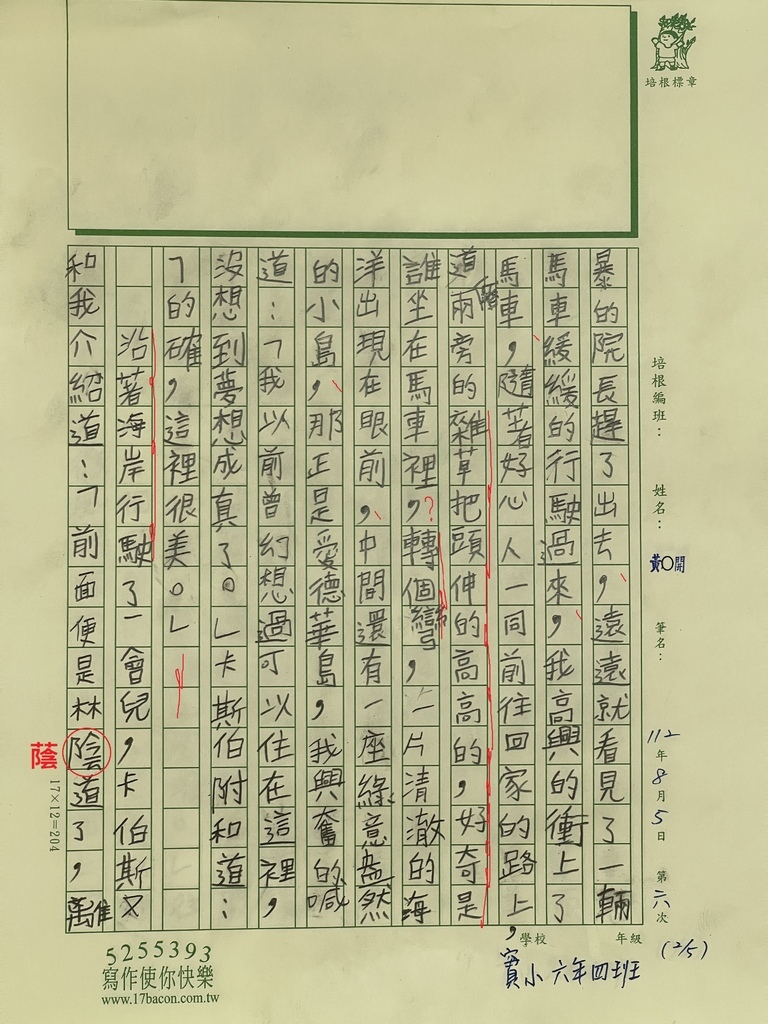 暴的院長趕了出去，遠遠就看見了一輛
馬車緩緩的行駛過來，我高興的衝上了
馬車，隨著好心人一同前往回家的路上，
道兩旁的雜草把頭伸的高高的，好奇是
誰坐在馬車裡，?轉個彎，一片清澈的海
洋出現在眼前，中間還有一座綠意盎然
的小島，那正是愛德華島，我興奮的喊
道：「我以前曾幻想過可以住在這裡，
沒想到夢想成真了。」卡斯伯附和道：
「的確，這裡很美。」
沿著海岸行駛了一會兒，卡伯斯又
和我介紹道：「前面便是林陰道了，雖
蔭
培根標章
培根編班：
姓名：
黃O開
筆名：
112年8月5日 第六次
(2/5)
學校 年級
寶小 六年四班
17×12=204
5255393
寫作使你快樂
www.17bacon.com.tw